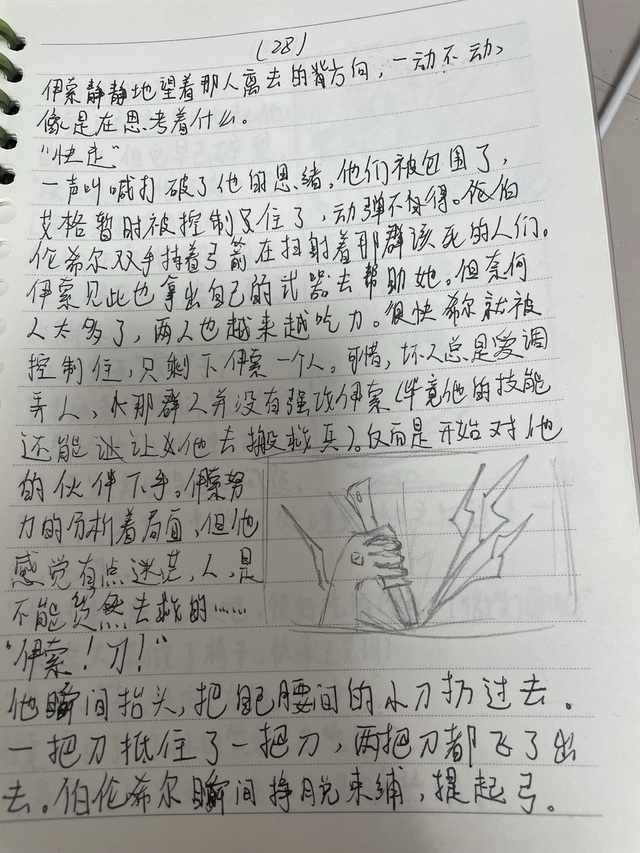 (28)
伊索静静地望着那人离去的背方向，一动不动，
像是在思考着什么。
“快走”
一声叫喊打破了他的思绪，他们被包围了，
艾格暂时被控制住了，动弹不得。伯
伦希尔双手持着弓箭在扫射着那群该死的人们。
伊索见此也拿出自己的武器去帮助她。但奈何
人太多了，两人也越来越吃力。很快希尔就被
控制住，只剩下伊索一个人。可惜，坏人总是爱调
弄人，那群人并没有强攻伊索（毕竟他的技能
还能让他去搬救兵）。反而是开始对他
的伙伴下手。伊索努
力的分析着局面，但他
感觉有点迷茫，人，是
不能贸然去救的……
“伊索！刀！”
他瞬间抬头，把自己腰间的小刀扔过去。
一把刀抵住了一把刀，两把刀都飞了出
去。伯伦希尔瞬间挣脱束缚，提起弓。